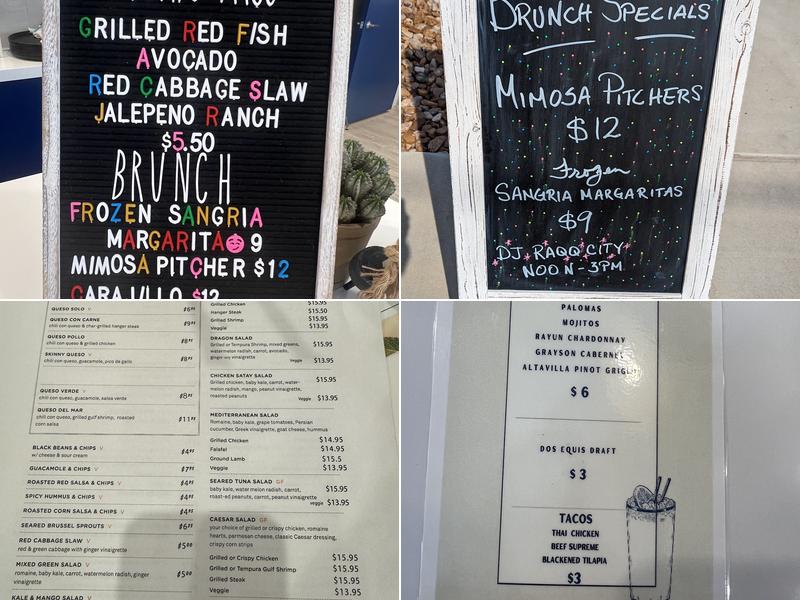 GRILLED RED FISH
AVOCADO
RED CABBAGE SLAW
JALEPENO RANCH
$5.50
BRUNCH
FROZEN SANGRIA
MARGARITA 9
MIMOSA PITCHER $12
CARAJILLO $12
BRUNCH SPECIALS
MIMOSA PITCHERS
$12
Frozen
SANGRIA MARGARITAS
$9
DJ RAQQ CITY
NOON-3PM
QUESO SOLO V
QUESO CON CARNE
chili con queso & char-grilled hanger steak
QUESO POLLO
chili con queso & grilled chicken
SKINNY QUESO V
chili con queso, guacamole, pico de gallo
QUESO VERDE V
chili con queso, guacamole, salsa verde
QUESO DEL MAR
chili con queso, grilled gulf shrimp, roasted
corn salsa
BLACK BEANS & CHIPS V
w/ cheese & sour cream
GUACAMOLE & CHIPS V
ROASTED RED SALSA & CHIPS V
SPICY HUMMUS & CHIPS V
ROASTED CORN SALSA & CHIPS V
SEARED BRUSSEL SPROUTS V
RED CABBAGE SLAW V
red & green cabbage with ginger vinaigrette
MIXED GREEN SALAD V
romaine, baby kale, carrot, watermelon radish, ginger
vinaigrette
KALE & MANGO SALAD V
Grilled Chicken $15.95
Hanger Steak $15.50
Grilled Shrimp $15.95
Veggie $13.95
DRAGON SALAD
Grilled or Tempura Shrimp, mixed greens, $15.95
watermelon radish, carrot, avocado,
ginger-soy vinaigrette
Veggie $13.95
CHICKEN SATAY SALAD
Grilled chicken, baby kale, carrot, water- $15.95
melon radish, mango, peanut vinaigrette,
roasted peanuts
Veggie $13.95
MEDITERRANEAN SALAD
Romaine, baby kale, grape tomatoes, Persian
cucumber, Greek vinaigrette, goat cheese, hummus
Grilled Chicken $14.95
Falafel $14.95
Ground Lamb $15.5
Veggie $13.95
SEARED TUNA SALAD GF
baby kale, water melon radish, carrot, $15.95
roast-ed peanuts, carrot, peanut vinaigrette
veggie $13.95
CAESAR SALAD GF
your choice of grilled or crispy chicken, romaine
hearts, parmesan cheese, classic Caesar dressing,
crispy corn strips
Grilled or Crispy Chicken $15.95
Grilled or Tempura Gulf Shrimp $15.95
Grilled Steak $15.95
Veggie $13.95
PALOMAS
MOJITOS
RAYUN CHARDONNAY
GRAYSON CABERNET
ALTAVILLA PINOT GRIGIO
$6
DOS EQUIS DRAFT
$3
TACOS
THAI CHICKEN
BEEF SUPREME
BLACKENED TILAPIA
$3